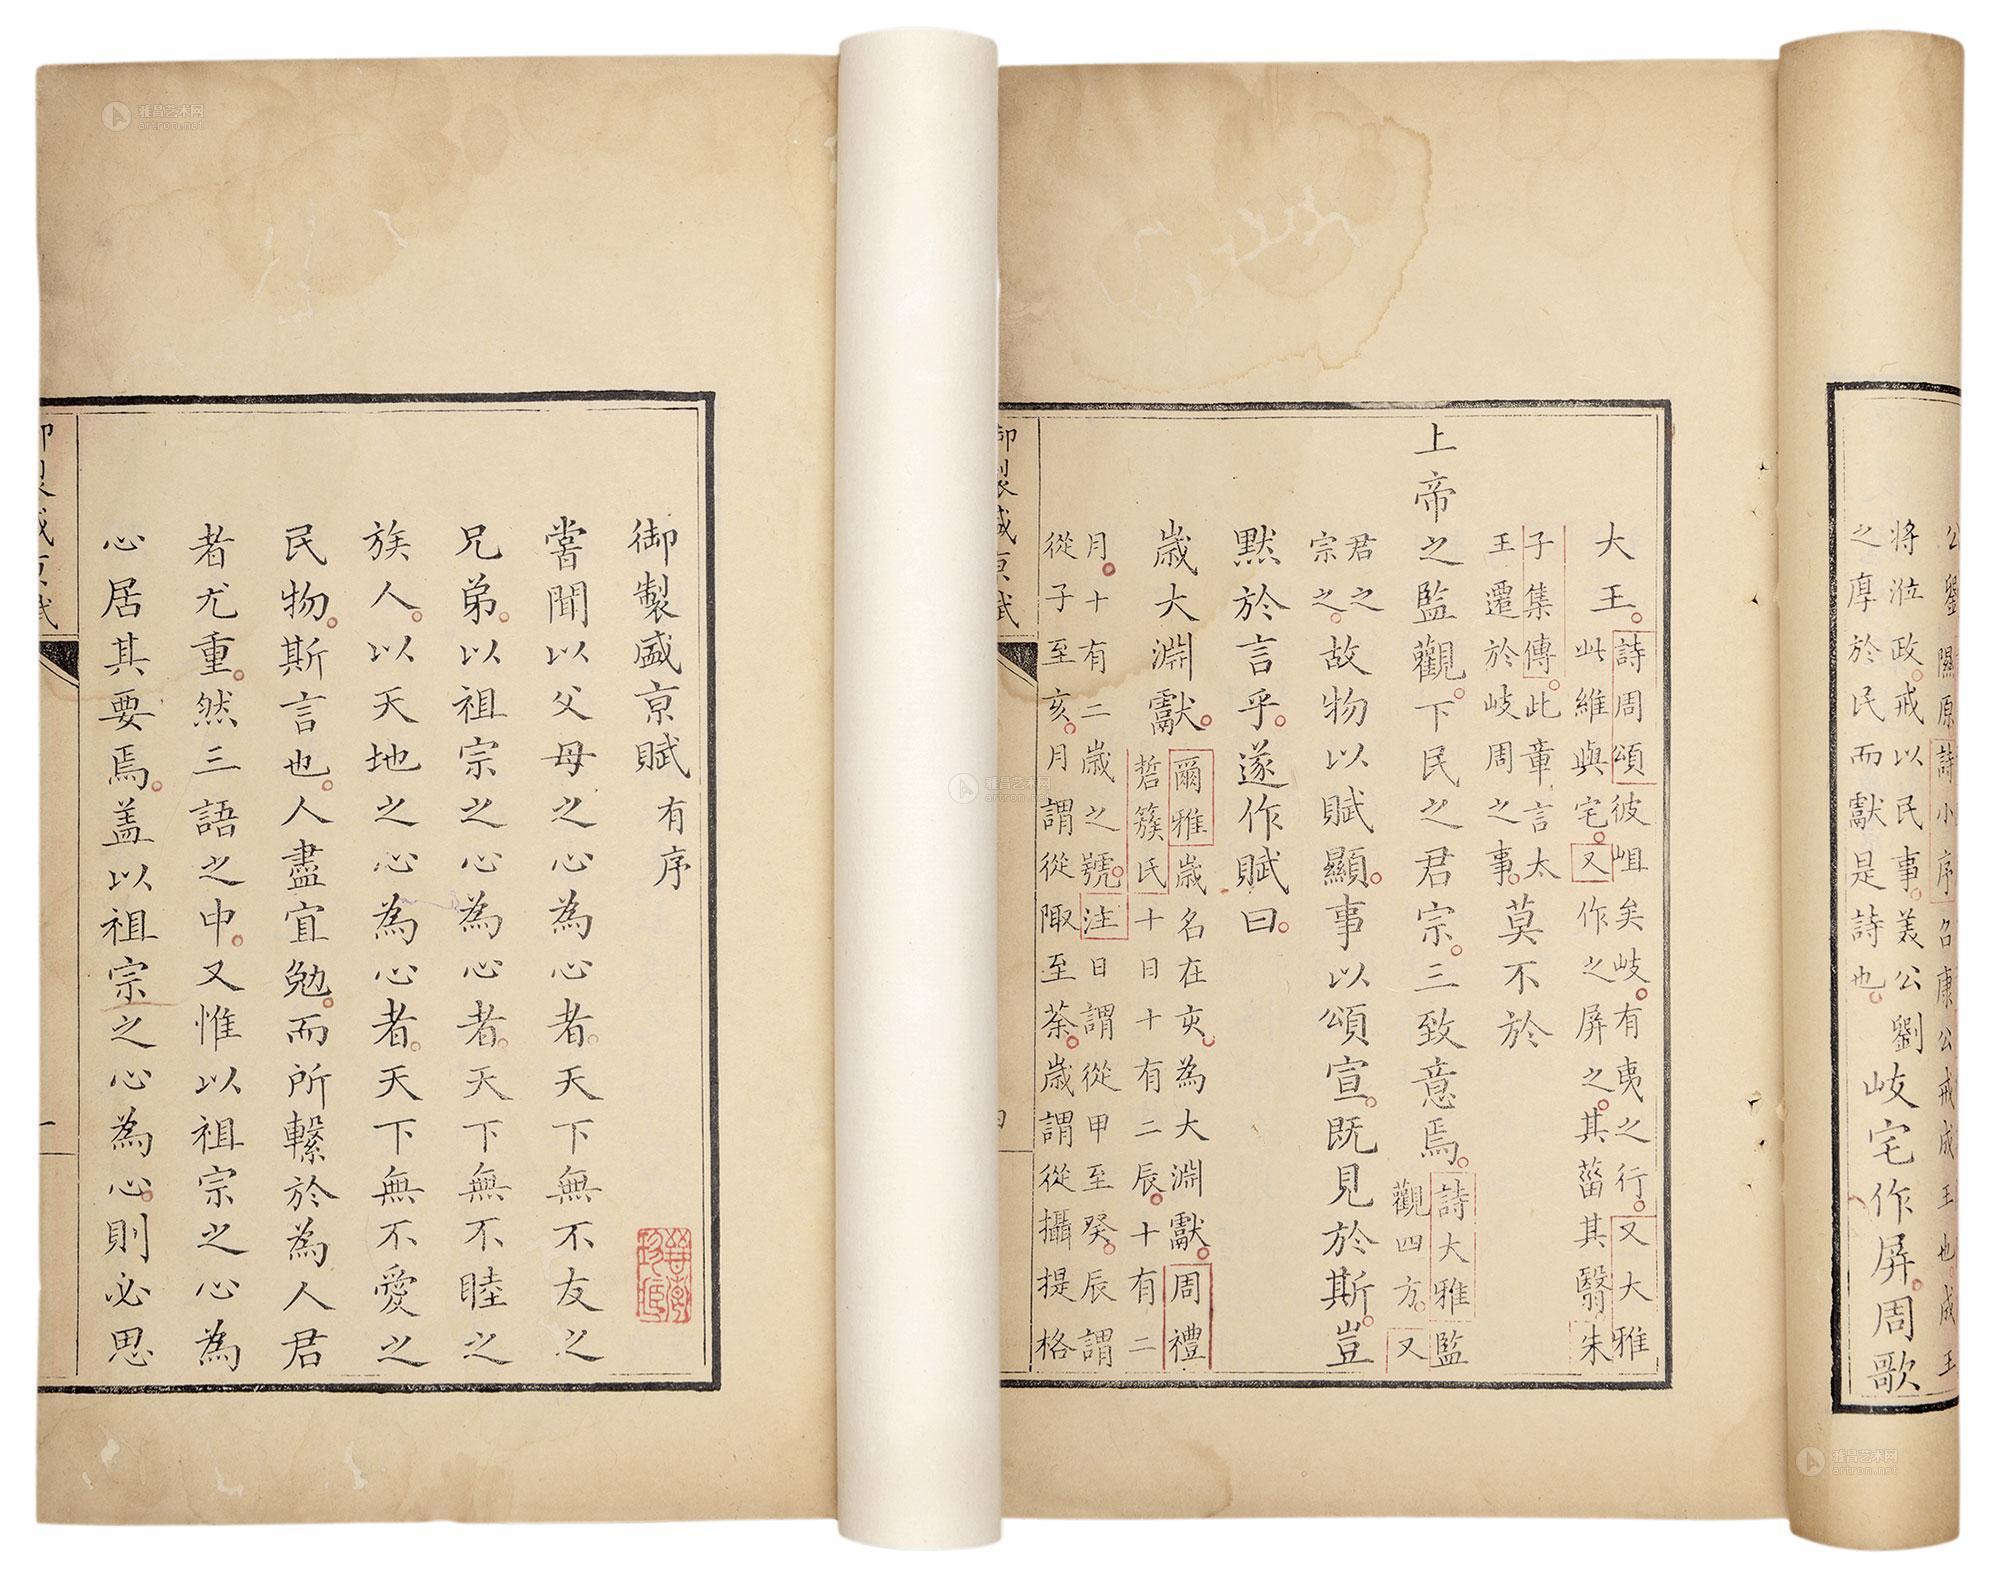 公劉關原詩小序召康公戒成王也。成王
將涖政。戒以民事。美公劉
之厚於民而獻是詩也。
岐宅作屏。周歌
大王。
詩周頌彼岨矣岐。有夷之行。又大雅
此維與宅。又作之屏之。其菑其翳朱
子集傳。此章言太
王遷於岐周之事。
莫不於
上帝之監觀。下民之君宗。三致意焉。
詩大雅監
觀四方。又
君之
宗之。
故物以賦顯。事以頌宣。既見於斯。豈
默於言乎。遂作賦曰。
歲大淵獻。
爾雅歲名在亥。為大淵獻。周禮
硩蔟氏十日十有二辰。十有二
月。十有二歲之號。注日謂從甲至癸。辰謂
從子至亥。月謂從陬至荼。歲謂從攝提格
御製盛京賦
四
御製盛京賦有序
嘗聞以父母之心為心者。天下無不友之
兄弟。以祖宗之心為心者。天下無不睦之
族人。以天地之心為心者。天下無不愛之
民物。斯言也。人盡宜勉。而所繫於為人君
者尤重。然三語之中。又惟以祖宗之心為
心居其要焉。蓋以祖宗之心為心。則必思
御製盛京賦
一
雅昌艺术网
artron.net
雅昌艺术网
artron.net
雅昌艺术网
artron.net